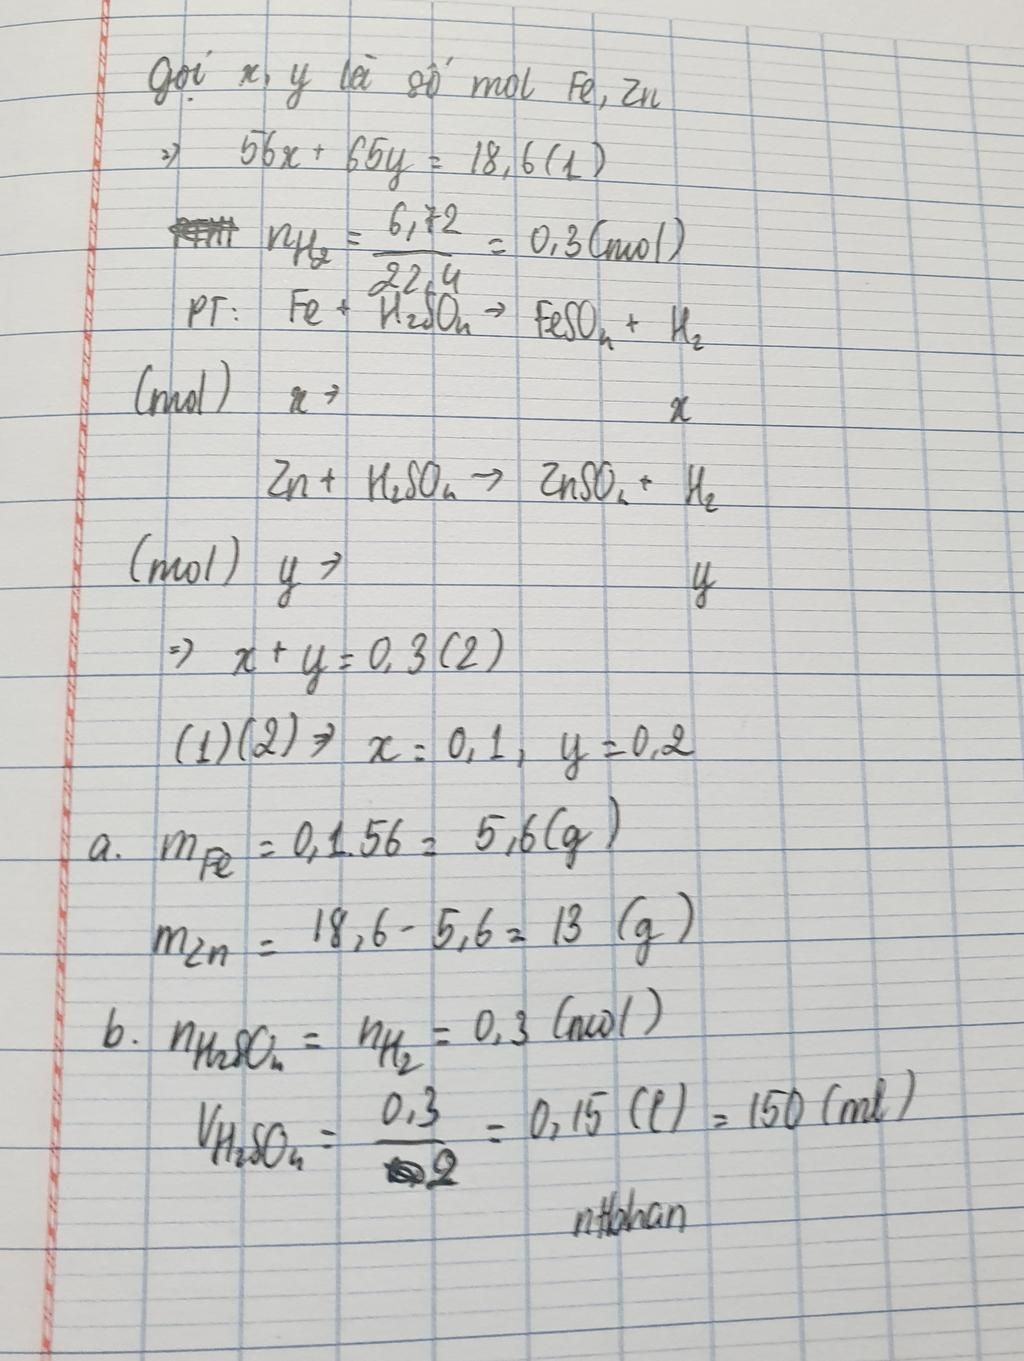 Gọi x, y là số mol Fe, Zn
=> 56x + 65y = 18,6 (1)
nH₂ = 6,72 / 22,4 = 0,3 (mol)
PT: Fe + H₂SO₄ → FeSO₄ + H₂
(mol) x → x
Zn + H₂SO₄ → ZnSO₄ + H₂
(mol) y → y
=> x + y = 0,3 (2)
(1)(2) => x = 0,1, y = 0,2
a. mFe = 0,1.56 = 5,6 (g)
mZn = 18,6 - 5,6 = 13 (g)
b. nH₂SO₄ = nH₂ = 0,3 (mol)
VH₂SO₄ = 0,3 / 2 = 0,15 (l) = 150 (ml)